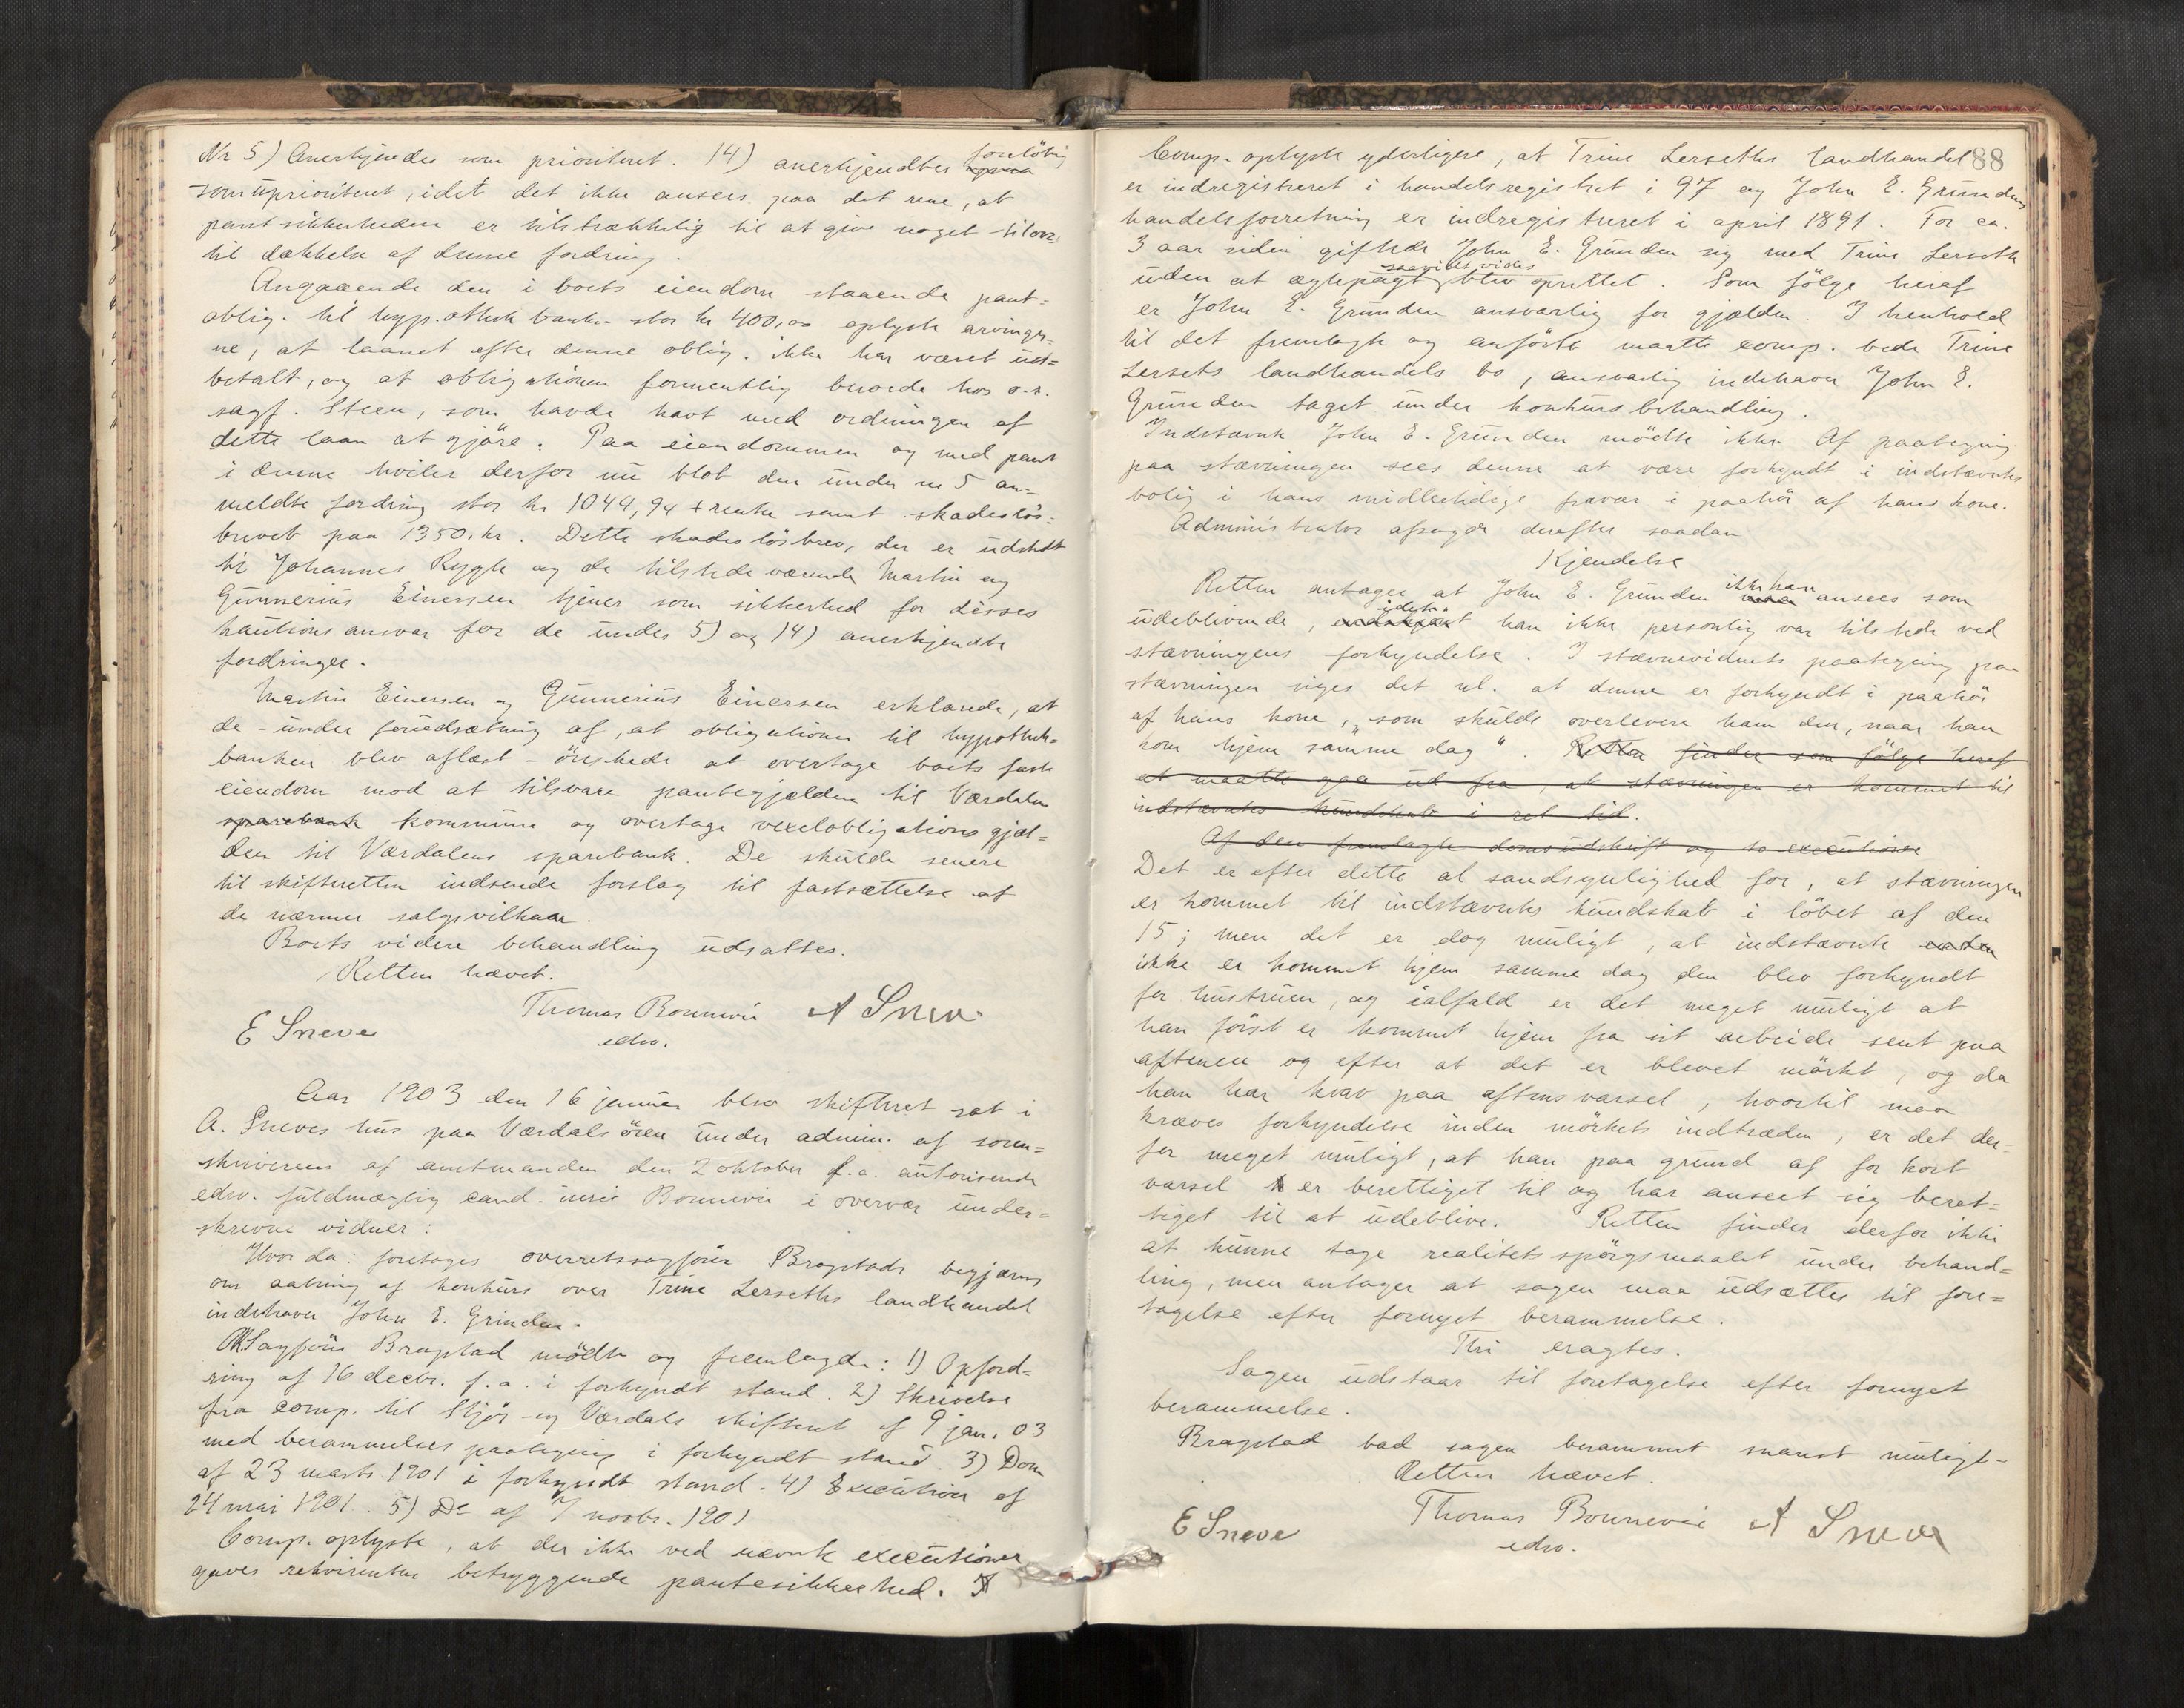 Nr 5) Anerkjendes som prioriteret. 14) anerkjendtes foreløbig
som uprioriteret, idet det ikke ansees paa det rene, at
pantsikkerheden er tilstrækkelig til at give noget tilovs
til dækkelse af denne fordring.
Angaaende den i boets eiendom staaende pant=
oblig. til hyp.othek banken stor kr 400,00 oplyste arvinger=
ne, at laanet efter denne oblig. ikke har været ud=
betalt, og at obligationen formentlig beroede hos o.r.
sagf. Steen, som havde havt med ordningen af
dette laan at gjøre. Paa eiendommen og med pant
i denne hviler derfor nu blot den under nr 5 an=
meldte fordring stor kr 1044,94 + rente samt skadesløs=
brevet paa 1350. kr. Dette skadesløsbrev, der er udstedt
til Johannes Rygh og de tilstedeværende Martin og
Gunnerius Einersen tjener som sikkerhed for disses
kautionsansvar for de under 5) og 14) anerkjendte
fordringer.
Martin Einersen og Gunnerius Einersen erklærede, at
de - under forudsætning af, at obligationen til hypothek=
banken blev aflæst - ønskede at overtage boets faste
eiendom mod at tilsvare pantegjælden til Værdalens
sparebank kommune og overtage vexelobligationsgjæl=
den til Værdalens sparebank. De skulde senere
til skifteretten indsende forslag til fastsættelse af
de nærmere salgsvilkaar.
Boets videre behandling udsattes.
Retten hævet.
Thomas Bonnevie A Sneve
E Sneve edsv.
Aar 1903 den 16 januar blev skifteret sat i
A. Sneves hus paa Værdalsøren under admin. af soren=
skriverens af amtmanden den 2 oktober f.a. autoriserede
edsv. fuldmægtig cand. juris Bonnevie i overvær under=
skrevne vidner:
Hvorda: foretoges overretssagfører Bragstads begjæring
om aabning af konkurs over Trine Lerseths landhandel
indehaver John E. Grinden.
Sagfører Bragstad mødte og fremlagde: 1) Opford=
ring af 16 decbr. f.a. i forkyndt stand. 2) Skrivelse
fra comp. til Stjør- og Værdals skifteret af 9 jan. 03
med berammelsespaategning i forkyndt stand. 3) Dom
af 23 marts 1901 i forkyndt stand. 4) Execution af
24 mai 1901. 5) Do af 7 novbr. 1901
Comp. oplyste, at der ikke ved nævnte executioner
gaves rekvirenten betryggende pantesikkerhed.
88
Comp. oplyste yderligere, at Trine Lerseths landhandel
er indregistreret i handelsregistret i 97 og John E. Grundens
handelsforretning er indregistreret i april 1891. For ca.
3 aar siden giftede John E. Grunden sig med Trine Lerseth
uden at ægtepagt saavidt vides blev oprettet. Som følge heraf
er John E. Grunden ansvarlig for gjælden. I henhold
til det fremlagte og anførte maatte comp. bede Trine
Lersets landhandels bo, ansvarlig indehaver John E.
Grunden taget under konkursbehandling.
Indstævnte John E. Grunden mødte ikke. Af paategning
paa stævningen sees denne at være forkyndt i indstævntes
bolig i hans midlertidige fravær i paahør af hans kone.
Administrator afsagde derefter saadan
Kjendelse
Retten antager at John E. Grunden ikke kan ansees som
udeblivende, idet han ikke personlig var tilstede ved
stævningens forkyndelse. I stævnevidnets paategning paa
stævningen siges det nl. at denne er forkyndt i paahør
af hans kone, „som skulde overlevere ham den, naar han
kom hjem samme dag". Retten finder som følge heraf
at maatte gaa ud fra, at stævningen er kommet til
indstævntes kundskab i ret tid.
Af den fremlagte domsudskrift og to executioner
Det er efter dette al sandsynlighed for, at stævningen
er kommet til indstævntes kundskab i løbet af den
15; men det er dog muligt, at indstævnte
ikke er kommet hjem samme dag den blev forkyndt
for hustruen, og ialfald er det meget muligt at
han først er kommet hjem fra sit arbeide sent paa
aftenen og efter at det er blevet mørkt, og da
han har krav paa aftens varsel, hvortil maa
kræves forkyndelse inden mørkets indtræden, er det der=
for meget muligt, at han paa grund af for kort
varsel er berettiget til og har anseet sig beret=
tiget til at udeblive. Retten finder derfor ikke
at kunne tage realitetsspørgsmaalet under behand=
ling, men antager at sagen maa udsættes til fore=
tagelse efter fornyet berammelse.
Thi eragtes.
Sagen udstaar til foretagelse efter fornyet
berammelse.
Bragstad bad sagen berammet snarest muligt-
Retten hævet.
E Sneve Thomas Bonnevie A Sneve
edsv.